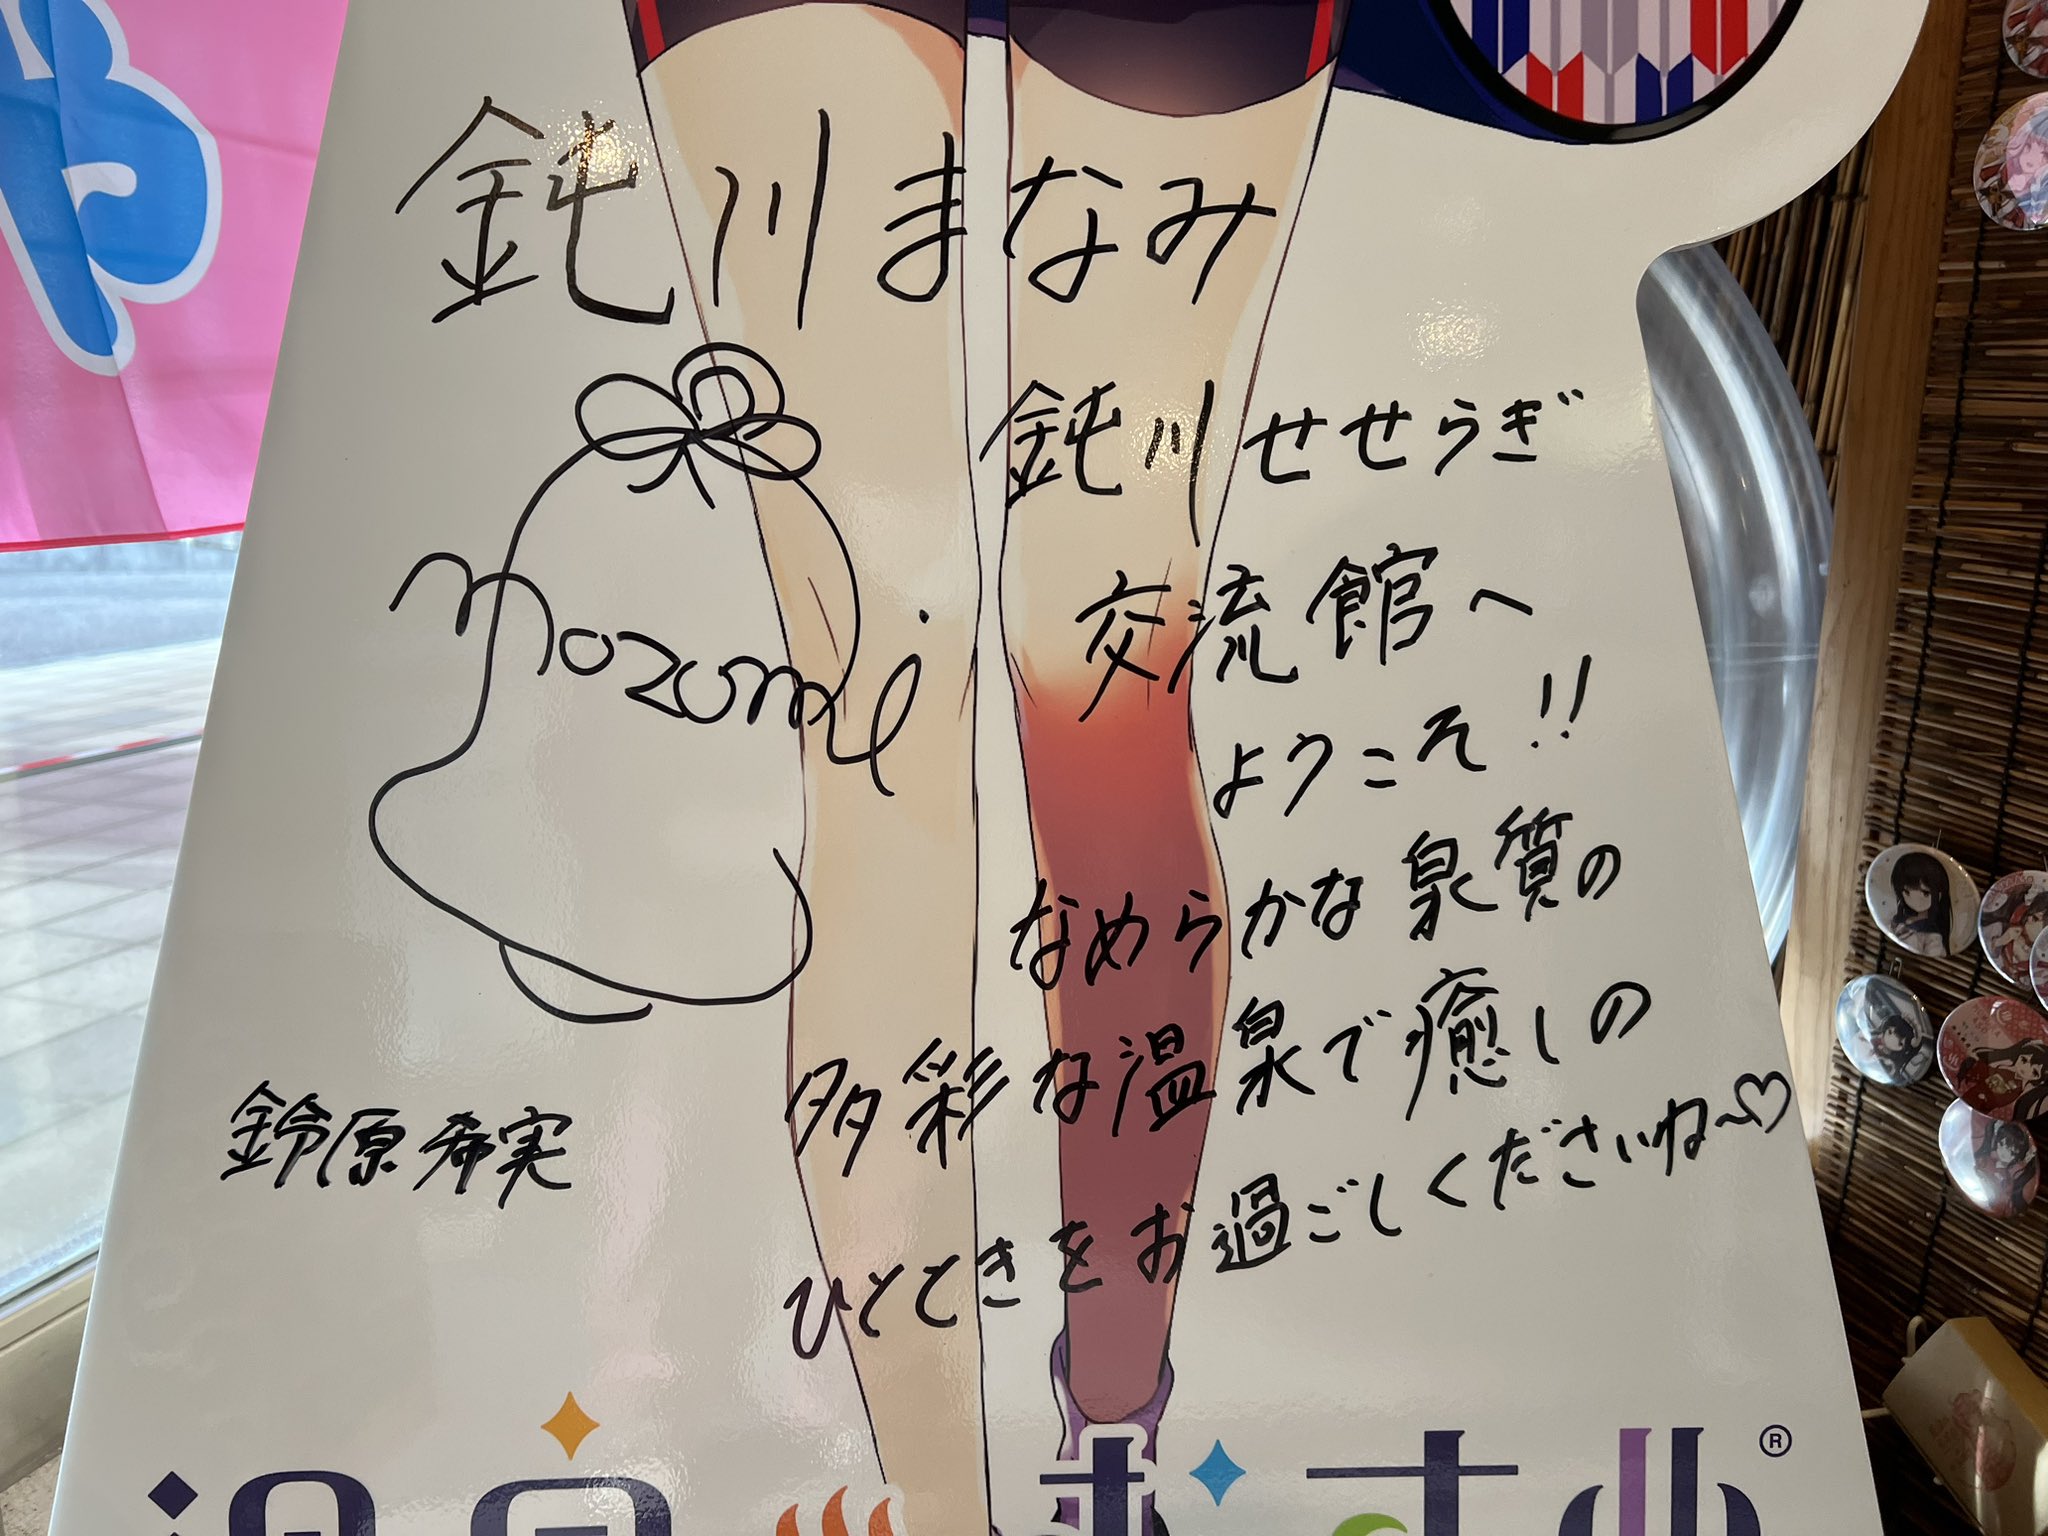 鈍川まなみ
nozomi
鈴原希実
鈍川せせらぎ
交流館へ
ようこそ!!
なめらかな泉質の
多彩な温泉で癒しの
ひとときをお過ごしくださいね〜♡
温泉むすめ®
や